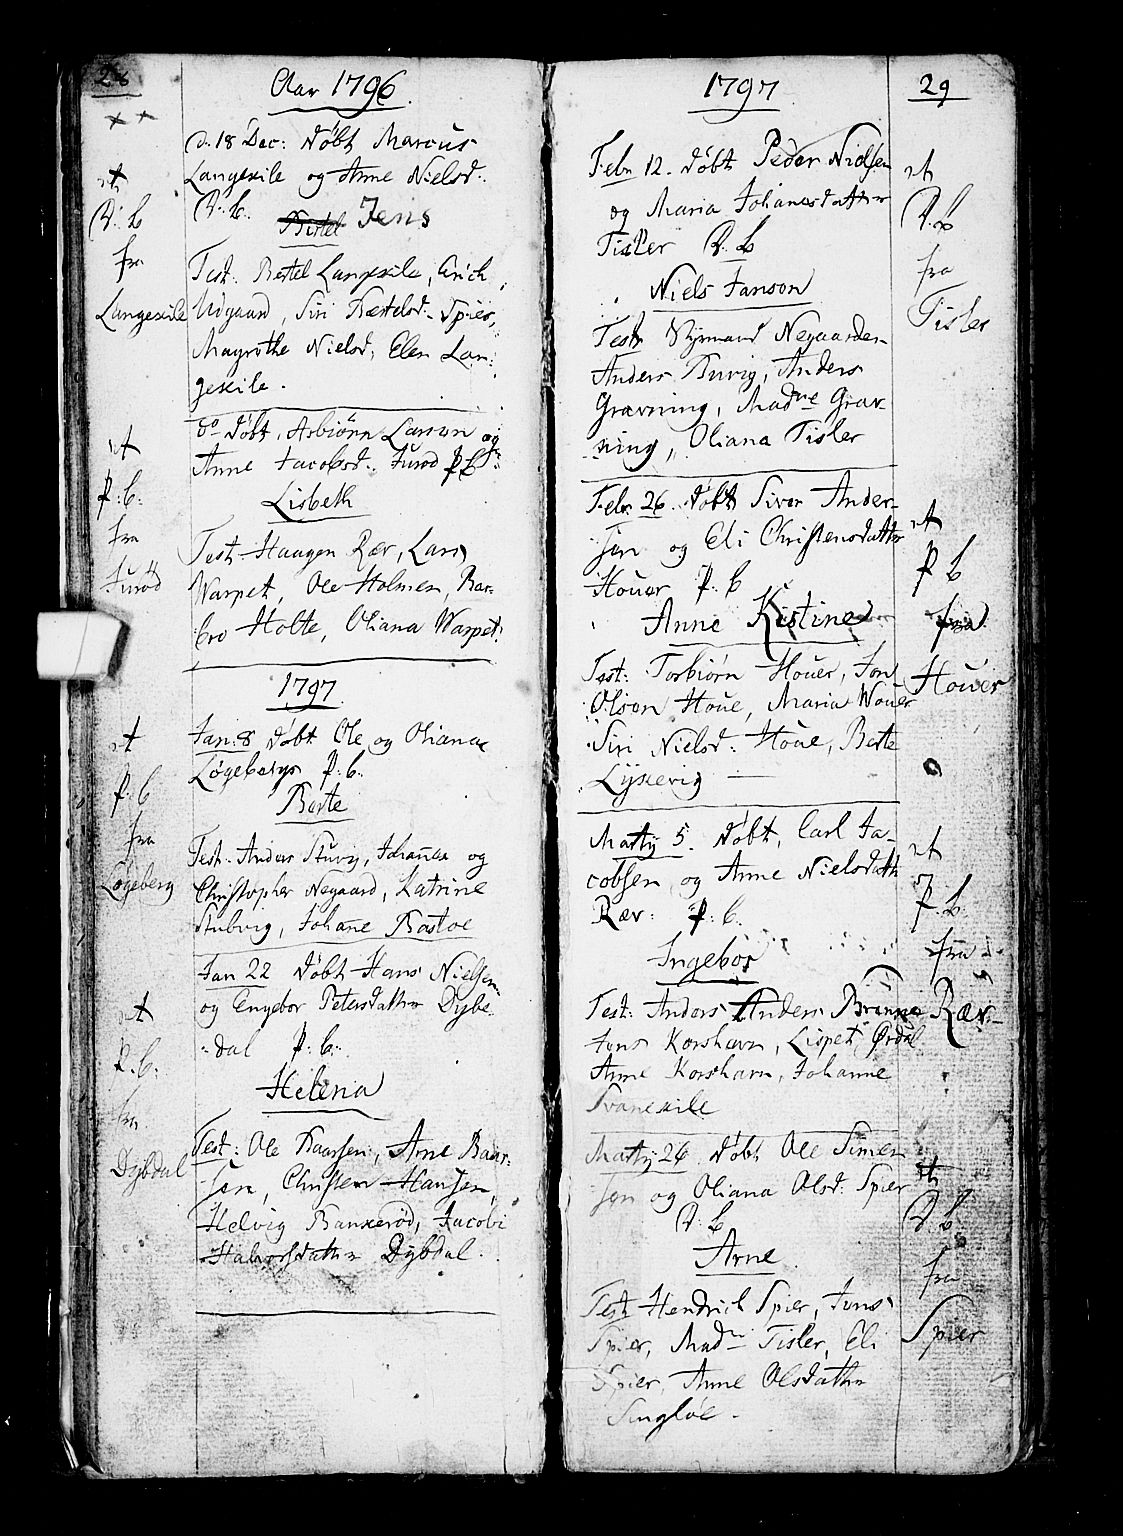 28
Aar 1796
d. 18 Dec: Døbt Marcus
Langekile og Anne Nielsd:
D: B. Bertel Jens
Test: Bertel Langekile, Erich
Udgaard, Siri Bertelsd. Spier,
Magrethe Nielsd, Elen Lan-
gekile.
D: B
fra
Langekile
do Døbt, Asbiörn Larson og
Anne Jacobsd. Furöd P B
Lisbeth
Test. Haagen Rær, Lars
Warpet, Ole Holmen, Bar-
bro Holte, Oliana Warpet.
P: B.
fra
Furöd
1797
Jan: 8 Døbt Ole og Oliana
Løgebergs P. B.
Berte
Test. Anders Stuvig, Johannes og
Christopher Negaard, Katrine
Stubvig, Johane Bastoe
P. B
fra
Løgeberg
Jan 22 Døbt Hans Nielsen
og Engebor Petersdatter Dybe-
dal P: B.
Helena
Test: Ole Baarsen, Arne Baar-
sen, Christen Hansen,
Helvig Bankerød, Jacobi
Halvorsdatter Dybdal.
P. B.
fra
Dybdal
1797
29
Febr 12. Døbt Peder Nielsen
og Maria Johanesdatter
Tisler D. B
Niels Janson
Test Styrmand Negaarden
Anders Buvig, Anders
Grævning, Madme Græv-
ning, Oliana Tisler
D. B
fra
Tisler
Febr 26. Døbt Siver Ander-
sen og Eli Christensdatter
Houer P. B
Anne Kistine
Test: Torbiörn Houer, Jon
Olson Houe, Maria Wouer
Siri Nielsd: Houe, Berte
Lykevig
P B
fra
Houer
Martÿ 5. Døbt, Carl Ja-
cobsen og Anne Nielsdatt
Rær: P: B.
Ingebor
Test: Anders Anders Brönne
Jens Korshavn, Lispet Ørdal
Anne Korshavn, Johanne
Svanekile
P. B.
fra
Rær
Martÿ 26. Døbt Ole Simen-
sen og Oliana Olsd: Spier
D: B
Arne
Test Hendrich Spier, Jens
Spier, Mad Tisler, Eli
Spier, Anne Olsdatter
Singløe.
D. B.
fra
Spier